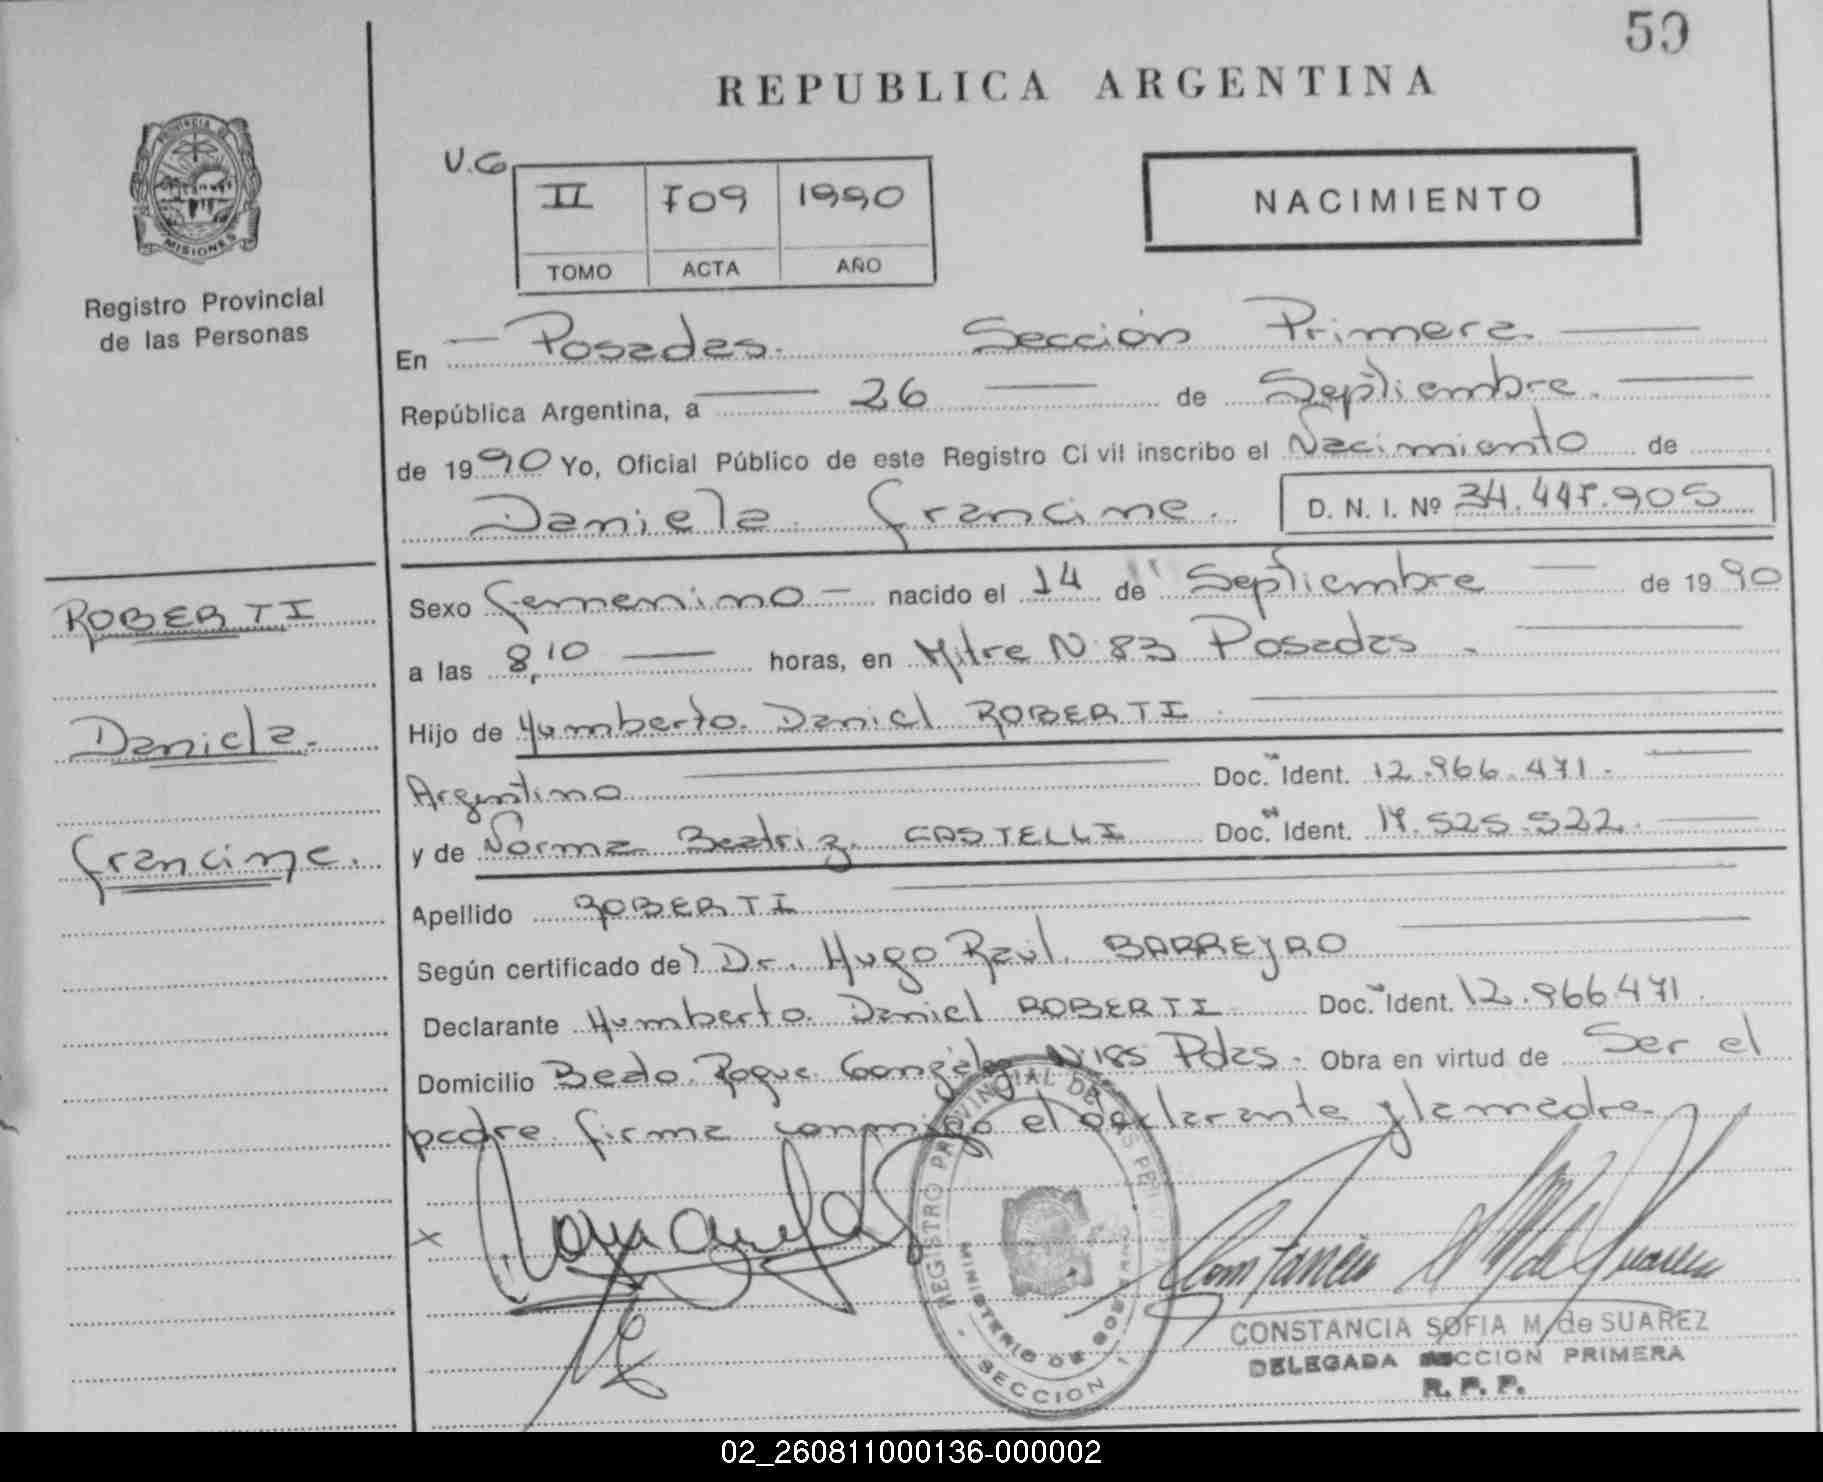 59
REPUBLICA ARGENTINA
PROVINCIA DE
MISIONES
Registro Provincial
de las Personas
V.G
II 709 1990
TOMO ACTA AÑO
NACIMIENTO
En Posadas. Sección Primera
República Argentina, a 26 de Septiembre.
de 1990 Yo, Oficial Público de este Registro Civil inscribo el Nacimiento de
Daniela Francine. D. N. I. Nº 34.447.905
ROBERTI
Daniela.
Francine.
Sexo femenino - nacido el 14 de Septiembre de 1990
a las 8,10 horas, en Mitre N 83 Posadas.
Hijo de Humberto Daniel ROBERTI
Argentino Doc. Ident. 12.966.471.
y de Norma Beatriz CASTELLI Doc. Ident. 17.525.522.
Apellido ROBERTI
Según certificado de Dr. Hugo Raúl BARREYRO
Declarante Humberto Daniel ROBERTI Doc. Ident. 12.966471.
Domicilio Beato Roque González N:185 Pdas. Obra en virtud de Ser el
padre firma conmigo el declarante y la madre
REGISTRO PROVINCIAL DE LAS PE
MINISTERIO DE GOBIERNO
SECCION 1
x
CONSTANCIA SOFIA M. de SUAREZ
DELEGADA SECCION PRIMERA
R. P. P.
02_260811000136-000002